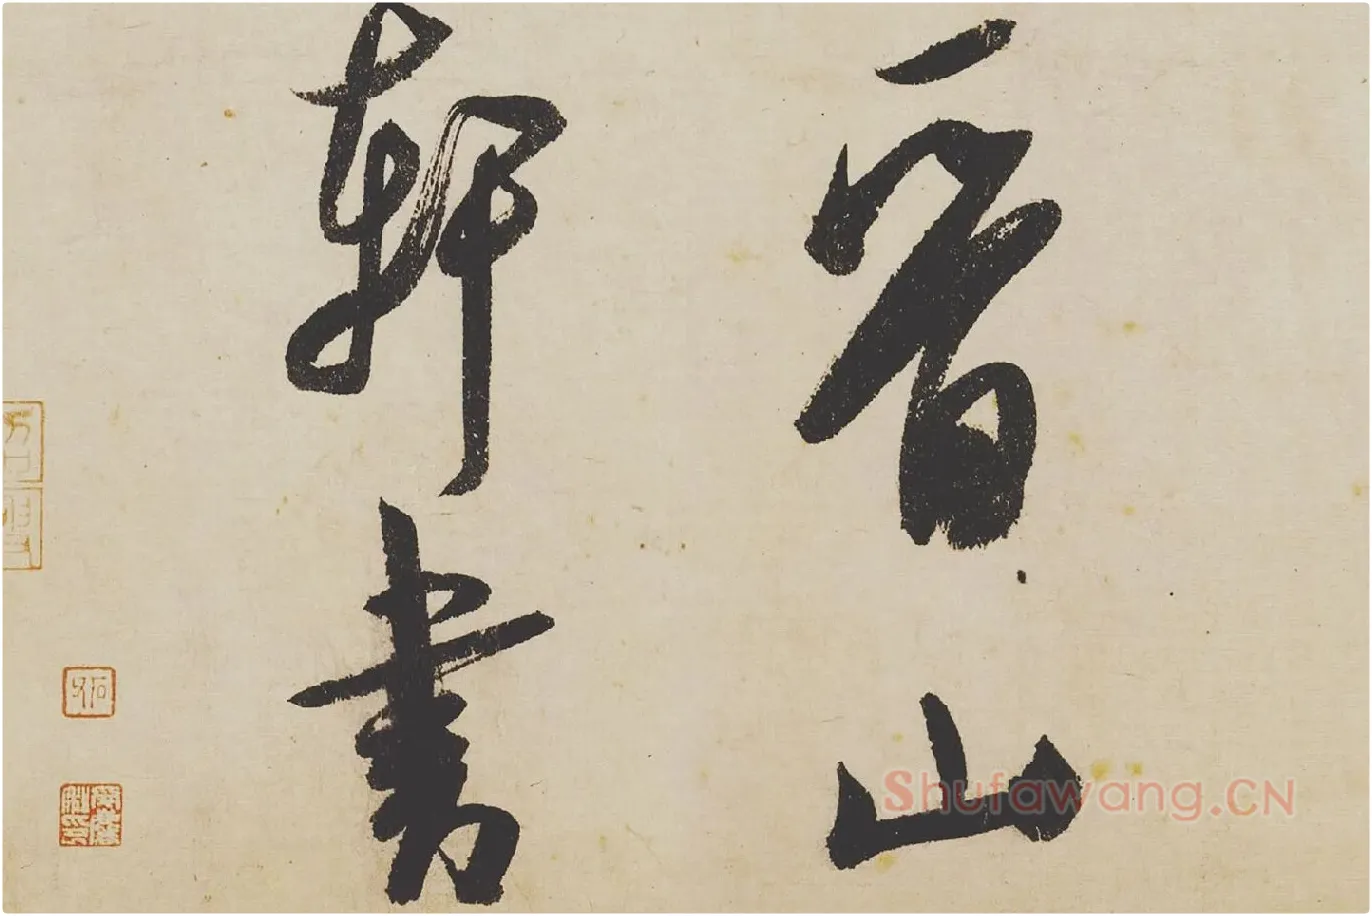 晉山
軒書
Shufawang.CN